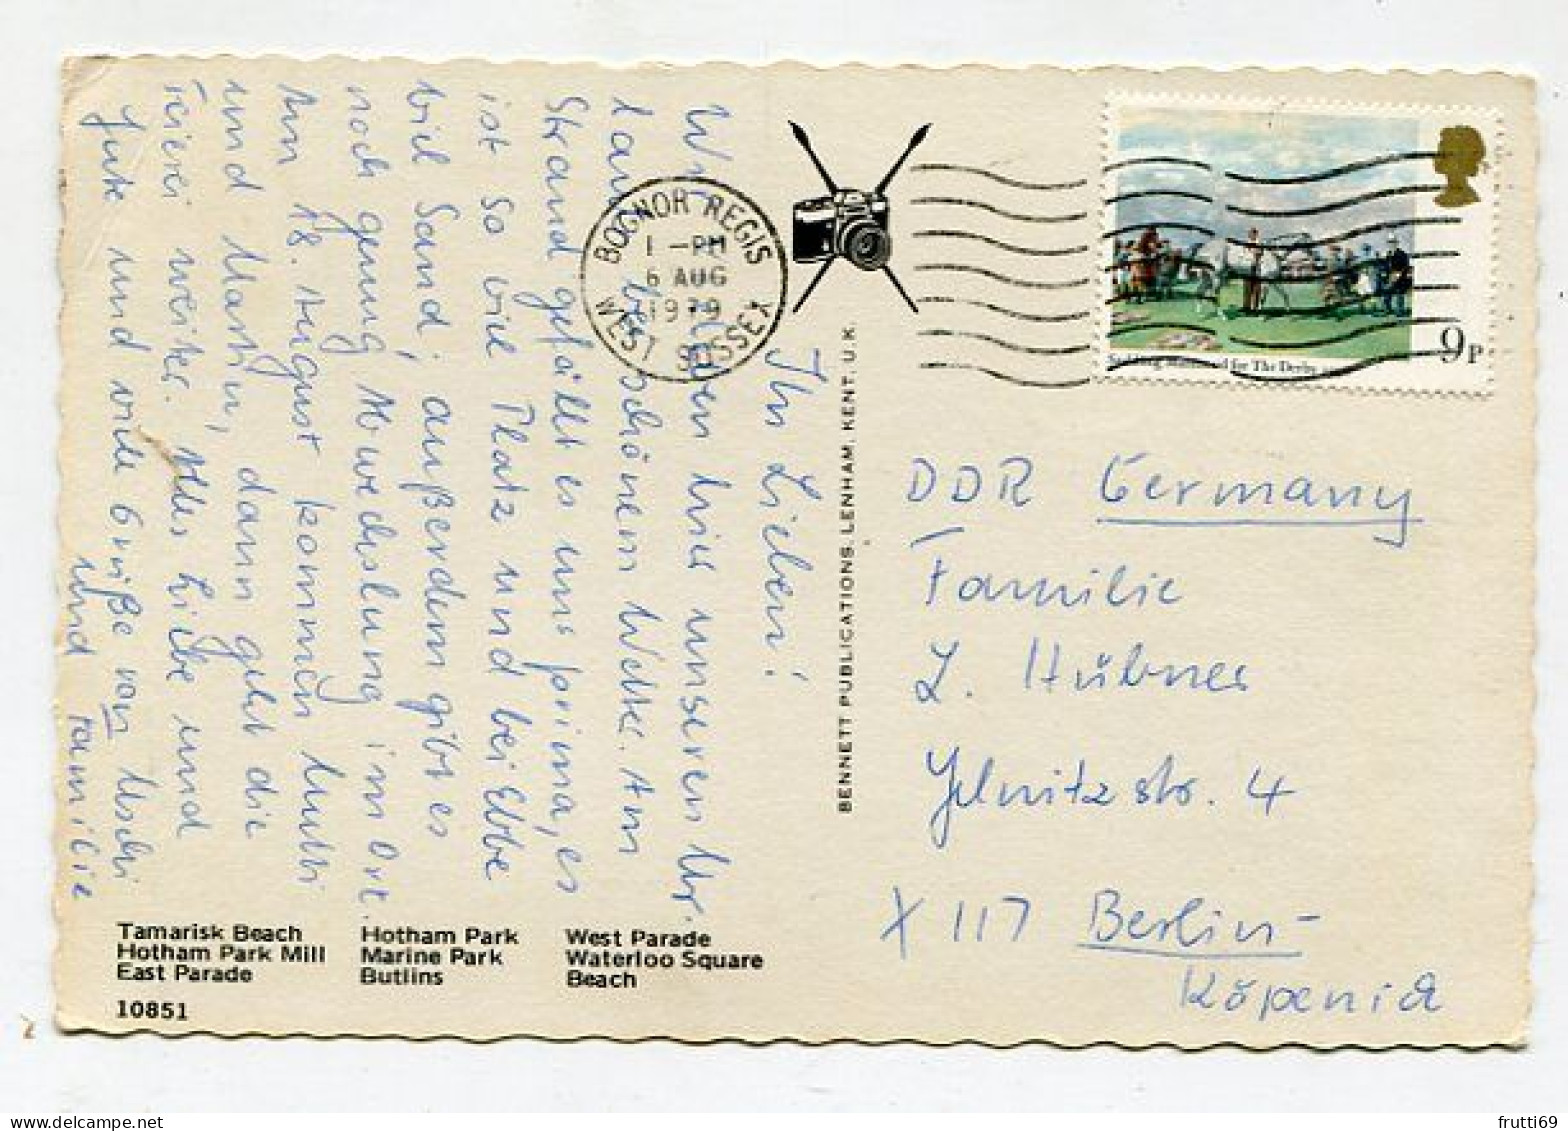 Ihr Lieben!
Wir haben hier unseren Ur-
laub bei schönem Wetter. Am
Strand gefällt es uns prima, es
ist so viel Platz und bei Ebbe
viel Sand, außerdem gibt es
noch genug Abwechslung im Ort.
Am 18. August kommen Mutti
und Martin, dann geht die
Feierei weiter. Alles Liebe und
Gute und viele Grüße von Uschi
und Familie
BOGNOR REGIS
1 -PM
6 AUG
1979
WEST SUSSEX
BENNETT PUBLICATIONS, LENHAM, KENT. U.K.
9P
for The Derby
DDR Germany
Familie
L. Hübner
str. 4
X 117 Berlin-
Köpenick
Tamarisk Beach
Hotham Park Mill
East Parade
Hotham Park
Marine Park
Butlins
West Parade
Waterloo Square
Beach
10851
frutti69